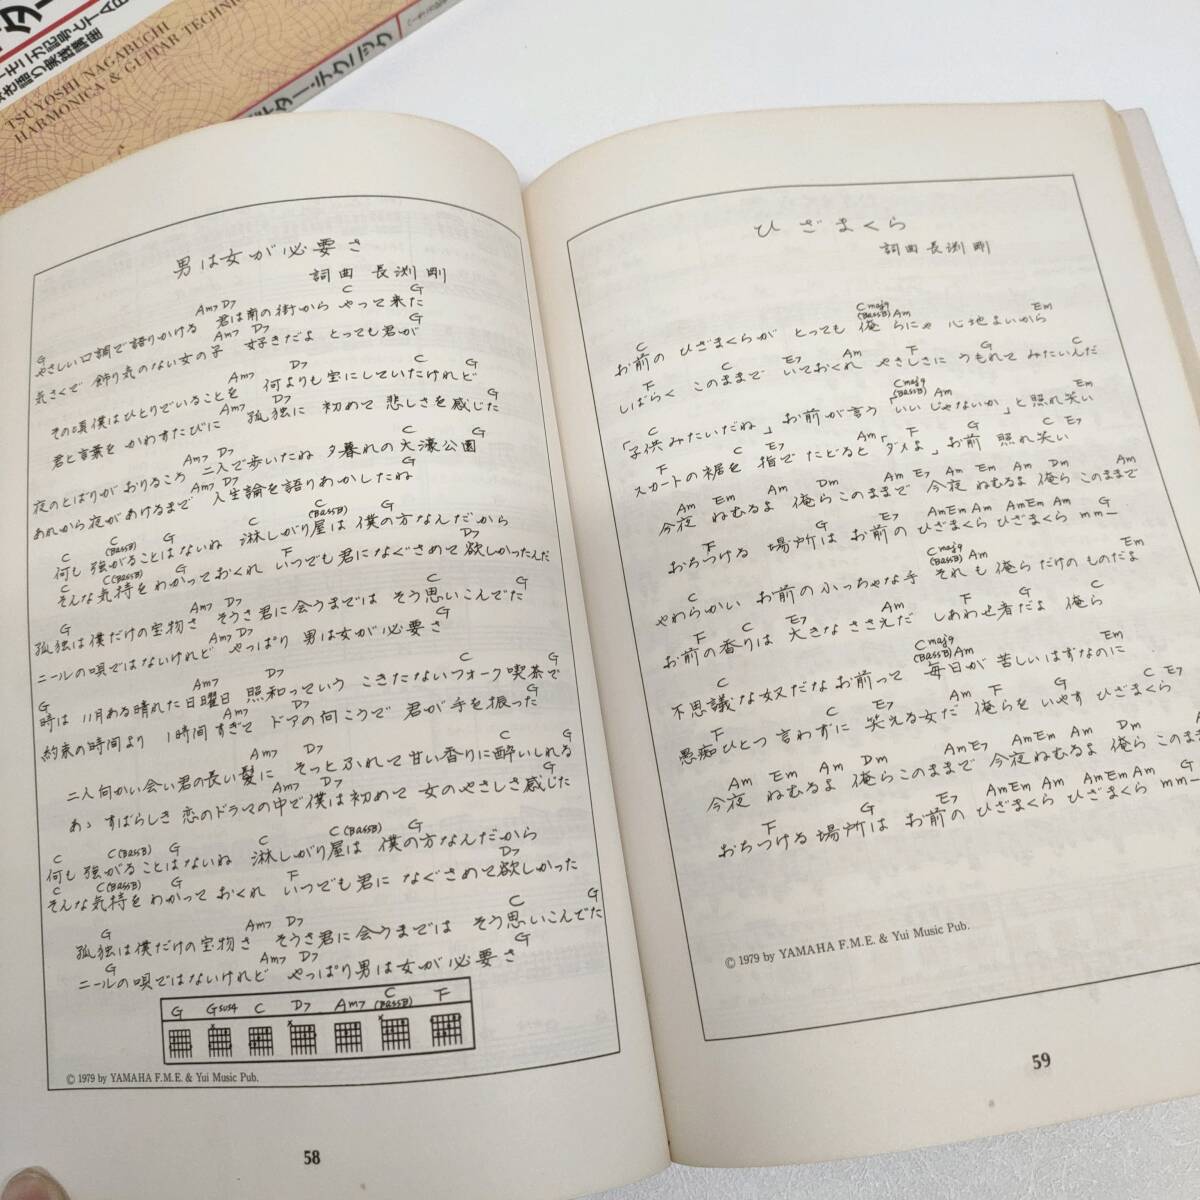 TSUYOSHI NAGABUCHI
HARMONICA & GUITAR TECHNIC
男は女が必要さ
詞曲 長渕 剛
Am7 D7 C G
G やさしい口調で語りかける 君は南の街から やって来た
Am7 D7 G
気さくで 飾り気のない女の子 好きだよ とっても君が
Am7 D7 C G
その頃僕はひとりでいることを 何よりも宝にしていたけれど
Am7 D7 G
君と言葉を かわすたびに 孤独に 初めて 悲しさを感じた
Am7 D7 C G
夜のとばりがおりるころ 二人で歩いたね 夕暮れの大濠公園
Am7 D7 G
あれから夜があけるまで 人生論を語りあかしたね
C C(BassB) G C C(BassB) G
何も 強がることはないね 淋しがり屋は 僕の方なんだから
C C(BassB) G F D7
そんな気持をわかっておくれ いつでも君になぐさめて欲しかったんだ
G Am7 D7 C G
孤独は僕だけの宝物さ そうさ君に会うまでは そう思いこんでた
Am7 D7 G
ニールの唄ではないけれど やっぱり 男は女が必要さ
G Am7 D7 C G
時は 11月ある晴れた日曜日 照和っていう こきたないフォーク喫茶で
Am7 D7 G
約束の時間より 1時間すぎて ドアの向こうで 君が手を振った
Am7 D7 C G
二人向かい会い君の長い髪に そっとふれて甘い香りに酔いしれる
Am7 D7 G
あゝ すばらしき 恋のドラマの中で僕は初めて 女のやさしさ感じた
C C(BassB) G C C(BassB) G
何も 強がることはないね 淋しがり屋は 僕の方なんだから
C C(BassB) G F D7
そんな気持をわかって おくれ いつでも君に なぐさめて欲しかった
G Am7 D7 C G
孤独は僕だけの宝物さ そうさ君に会うまでは そう思いこんでた
G Am7 D7 G
ニールの唄ではないけれど やっぱり男は女が必要さ
G Gsus4 C D7 Am7 C(BassB) F
© 1979 by YAMAHA F.M.E. & Yui Music Pub.
58
ひざまくら
詞曲 長渕 剛
C Cmaj9(BassB) Am Em
お前の ひざまくらが とっても 俺 らにゃ 心地よいから
F C E7 Am F G C
しばらく このままで いておくれ やさしさに うもれて みたいんだ
C Cmaj9(BassB) Am Em
「子供みたいだね」お前が言う「いいじゃないか」と照れ笑い
F C E7 Am F G C E7
スカートの裾を 指で たどると「ダメよ」お前 照れ笑い
Am Em Am Dm Am E7 Am Em Am Dm
今夜 ねむるよ 俺らこのままで 今夜 ねむるよ 俺ら このままで
F G E7 AmEmAm AmEmAm G
おちつける 場所は お前の ひざまくら ひざまくら mm−
C Cmaj9(BassB) Am Em
やわらかい お前の ふっちゃな手 それも 俺ら だけの ものだよ
F C E7 Am F G C
お前の香りは 大きな ささえだ しあわせ者だよ 俺ら
C Cmaj9(BassB) Am Em
不思議な奴だな お前って 毎日が 苦しいはずなのに
F C E7 Am F G C E7
愚痴ひとつ 言わずに 笑える女だ 俺らを いやす ひざまくら
Am Em Am Dm Am E7 AmEm Am Dm
今夜 ねむるよ 俺らこのままで 今夜 ねむるよ 俺ら このまま
F G E7 AmEm Am AmEmAm G
おちつける 場所は お前の ひざまくら ひざまくら mm−
© 1979 by YAMAHA F.M.E. & Yui Music Pub.
59